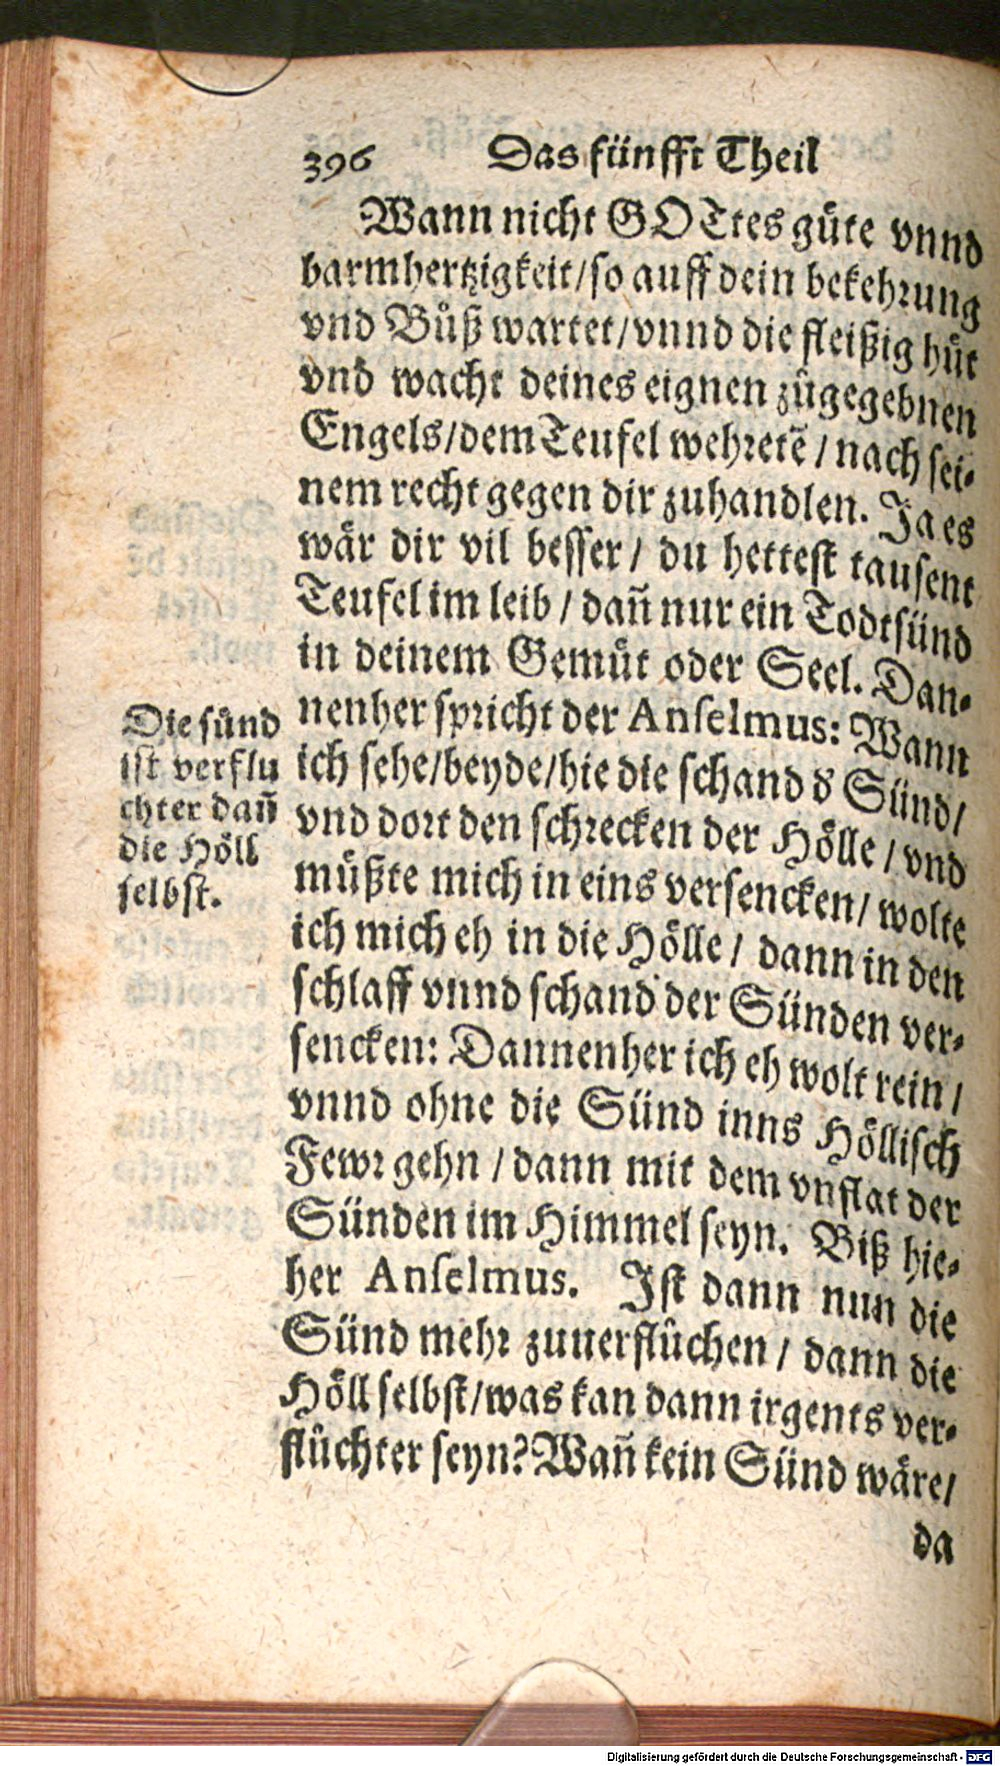 396 Das fünfft Theil
Wann nicht GOTtes güte vnnd
barmhertzigkeit/so auff dein bekehrung
vnd Bůß wartet/vnnd die fleißig hůt
vnd wacht deines eignen zůgegebnen
Engels/dem Teufel wehretẽ/nach sei-
nem recht gegen dir zuhandlen. Ja es
wär dir vil besser/ du hettest tausent
Teufel im leib/dañ nur ein Todtsünd
in deinem Gemůt oder Seel. Dan-
nenher spricht der Anselmus: Wann
ich sehe/beyde/hie die schand d' Sünd/
vnd dort den schrecken der Hölle/vnd
müßte mich in eins versencken/wolte
ich mich eh in die Hölle/ dann in den
schlaff vnnd schand der Sünden ver-
sencken: Dannenher ich eh wolt rein/
vnnd ohne die Sünd inns Höllisch
Fewr gehn/dann mit dem vnflat der
Sünden im Himmel seyn. Biß hie-
her Anselmus. Ist dann nun die
Sünd mehr zuuerflůchen/ dann die
Höll selbst/was kan dann irgents ver-
flůchter seyn? Wañ kein Sünd wäre/
da
Die sünd
ist verflu
chter dañ
die Höll
selbst.
Digitalisierung gefördert durch die Deutsche Forschungsgemeinschaft - DFG